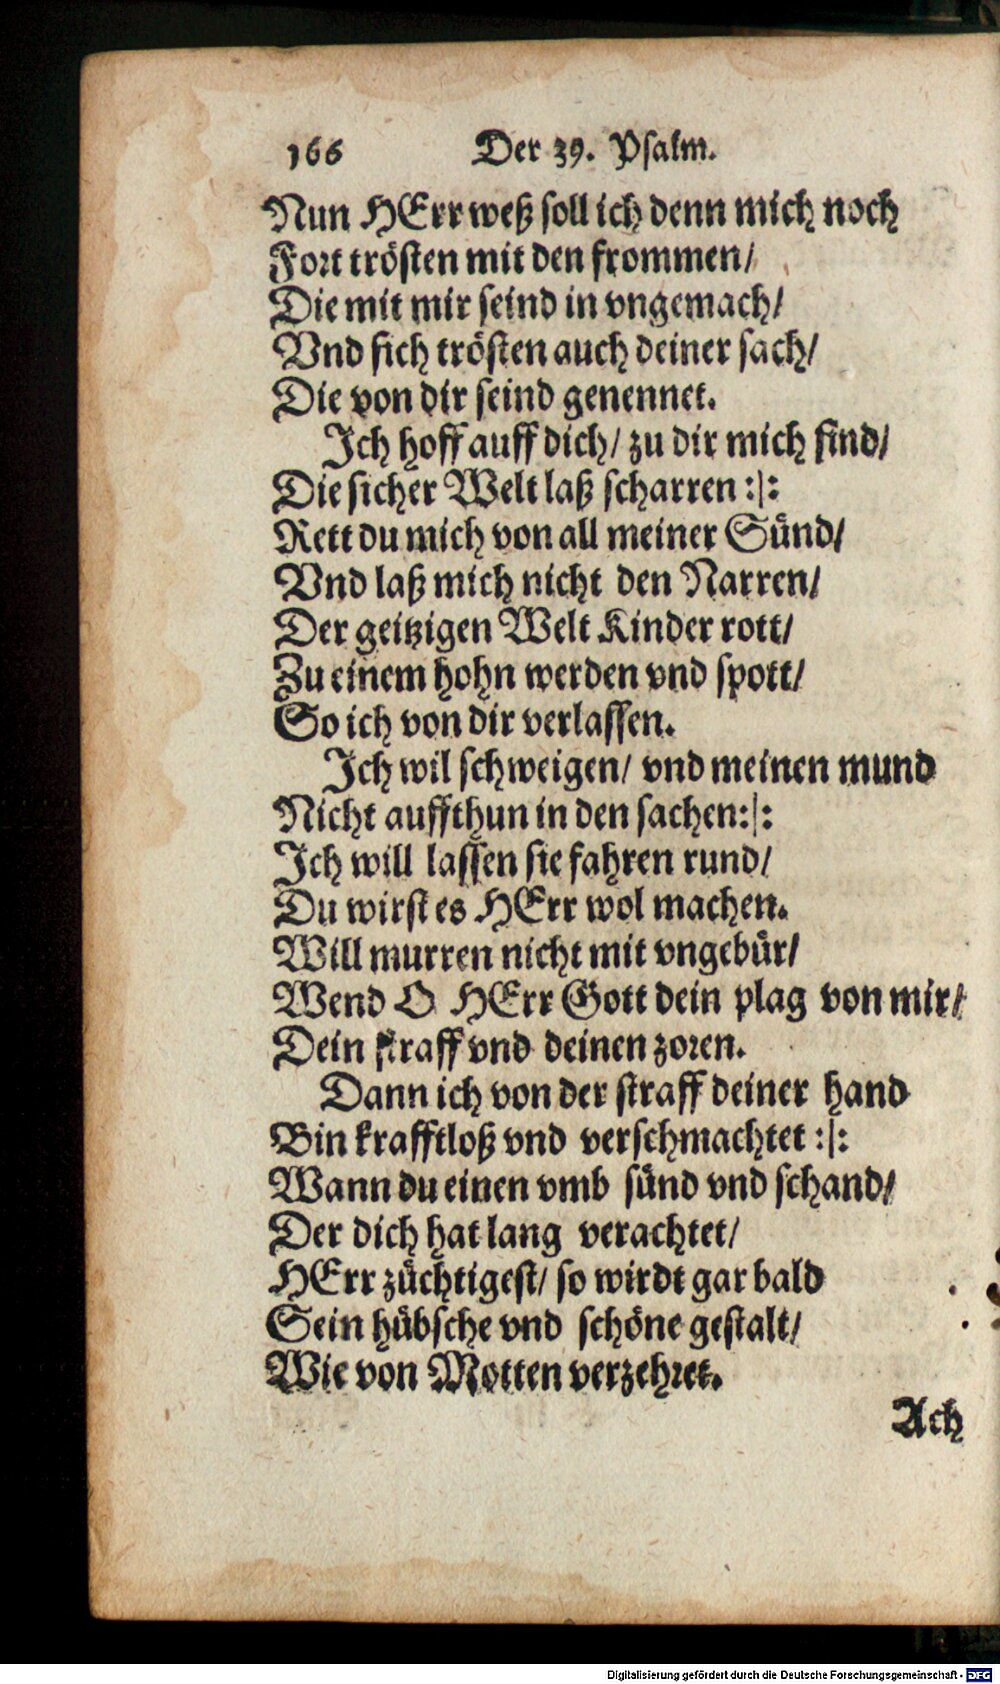 166 Der 39. Psalm.
Nun HErr weß soll ich denn mich noch
Fort trösten mit den frommen/
Die mit mir seind in vngemach/
Vnd sich trösten auch deiner sach/
Die von dir seind genennet.
Ich hoff auff dich/ zu dir mich find/
Die sicher Welt laß scharren :|:
Rett du mich von all meiner Sünd/
Vnd laß mich nicht den Narren/
Der geitzigen Welt Kinder rott/
Zu einem hohn werden vnd spott/
So ich von dir verlassen.
Ich wil schweigen/ vnd meinen mund
Nicht auffthun in den sachen:|:
Ich will lassen sie fahren rund/
Du wirst es HErr wol machen.
Will murren nicht mit vngebür/
Wend O HErr Gott dein plag von mir/
Dein straff vnd deinen zoren.
Dann ich von der straff deiner hand
Bin krafftloß vnd verschmachtet :|:
Wann du einen vmb sünd vnd schand/
Der dich hat lang verachtet/
HErr züchtigest/ so wirdt gar bald
Sein hübsche vnd schöne gestalt/
Wie von Motten verzehret.
Ach
Digitalisierung gefördert durch die Deutsche Forschungsgemeinschaft - DFG